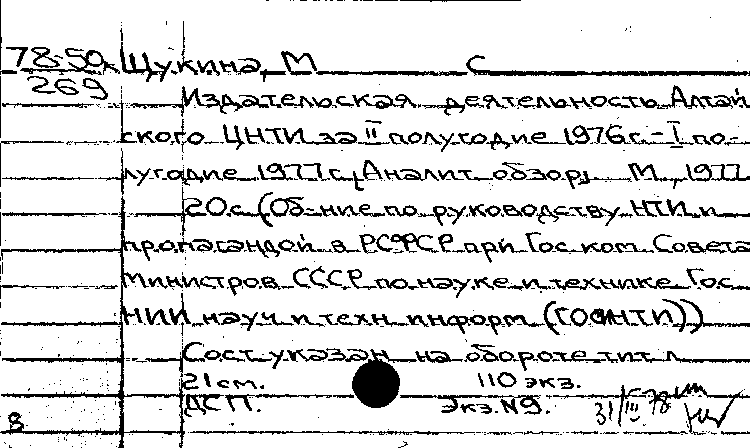 78-50
269
Щукина, М С
Издательская деятельность Алтай
ского ЦНТИ за II полугодие 1976г.-I по-
лугодие 1977г. [Аналит. обзор] М., 1977
20с. (Об-ние по руководству НТИ и
пропагандой в РСФСР при Гос. ком. Совета
Министров СССР по науке и технике. Гос.
НИИ науч. и техн. информ. (ГОСИНТИ))
Сост. указан на обороте тит. л.
21 см. 110 экз.
ДСП. Экз. №9. 31/III 78
8